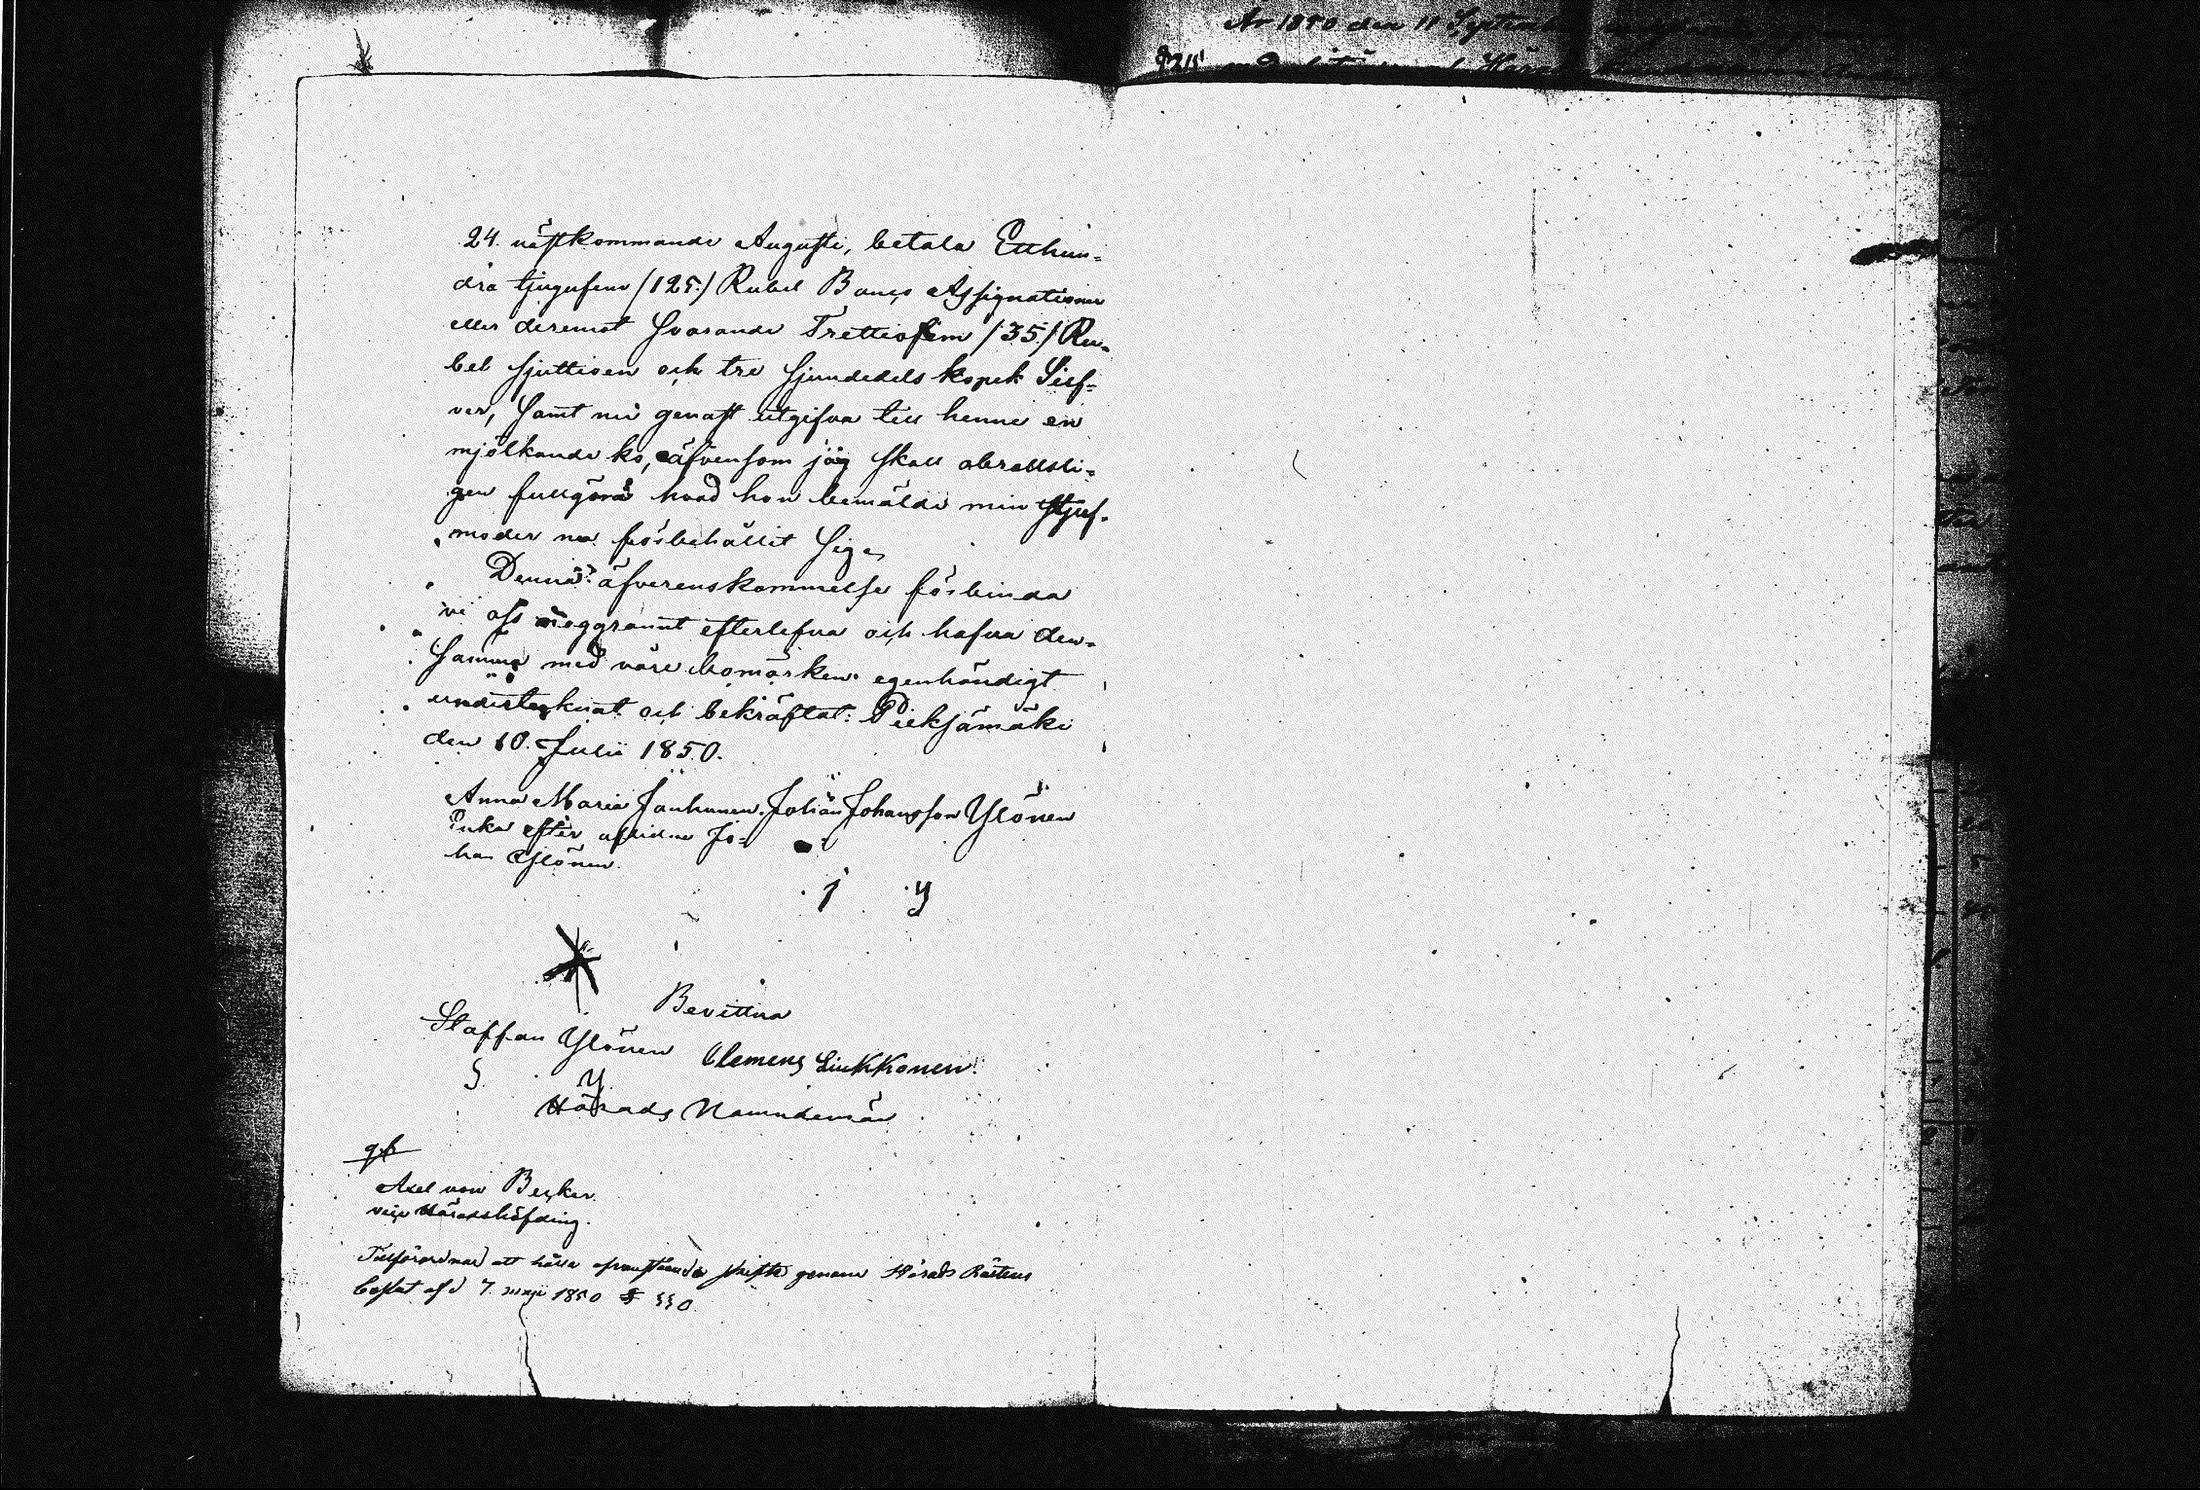 År 1850 den 11 September
24. nästkommande Augusti, betala Etthun-
dra tjugufem /125./ Rubel Banco Assignationer
eller deremot svarande Trettiofem /35./ Ru-
bel sjuttioen och tre sjundedels kopek Silf-
ver, samt nu genast utgifva till henne en
mjölkande ko, äfvensom jag skall obrottsli-
gen fullgöra hvad hon bemälde min Stjuf-
moder nu förbehållit sig.
Denna öfverenskommelse förbinda
vi oss noggrannt efterlefva och hafva den-
samma med våre bomärken egenhändigt
undertecknat och bekräftat: Pieksämäki
den 10. Julii 1850.
Anna Maria Janhunen. Johan Johansson Ylönen
Enka efter aflidne Jo-
han Ylönen.
j y
Bevittna
Staffan Ylönen Clemens Liukkonen
S. Y.
Härads Nämndemän
Axel von Becker.
vice Häradshöfding.
Tillförordnad att hålla ofvanstående skifte genom Härads Rättens
beslut af d 7. maji 1850 § 550.